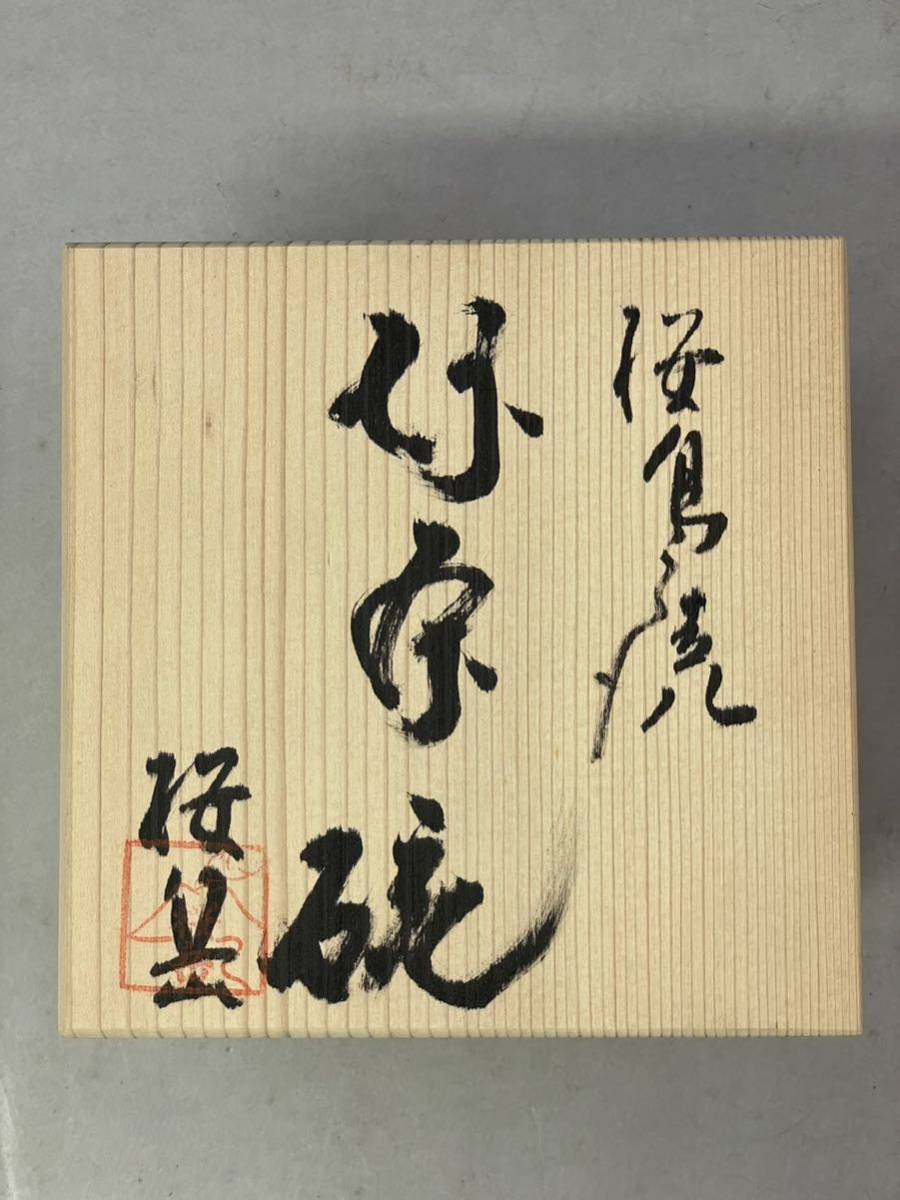 桜島焼
抹茶碗
桜岳